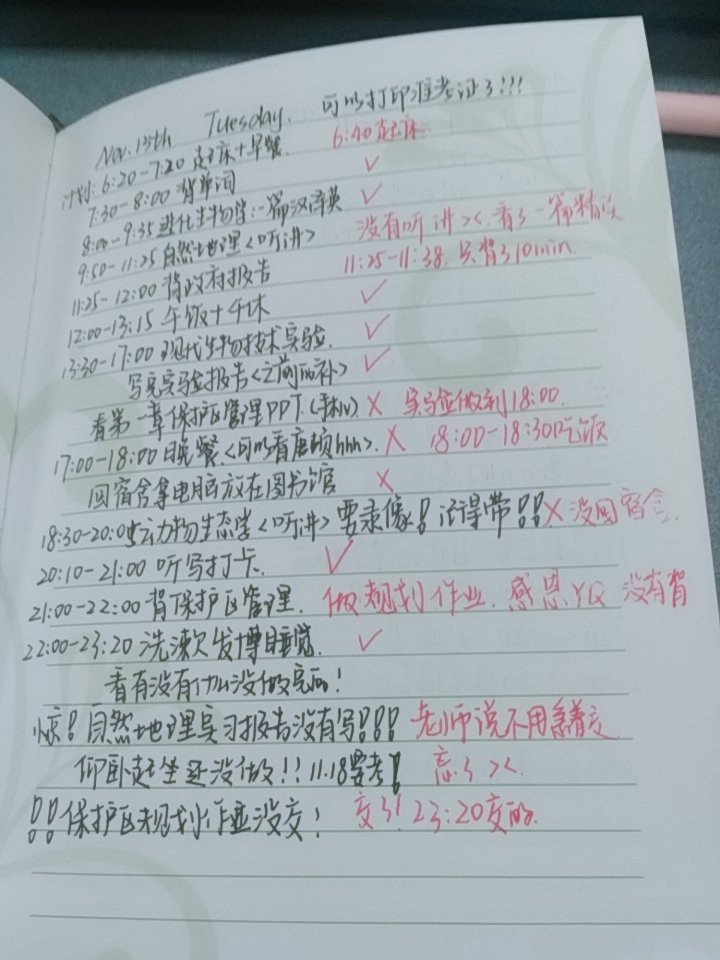 Nov. 13th Tuesday. 可以打印准考证了!!!
计划: 6:20-7:20 起床+早餐. 6:40起床.
7:30-8:00 背单词 ✓
8:00-9:35 进化生物学:一篇汉译英 ✓
9:50-11:25 自然地理<听讲> 没有听讲><.看了一篇精读
11:25-12:00 背政府报告 11:25-11:38. 只背了10min.
12:00-13:15 午饭+午休 ✓
13:30-17:00 现代生物技术实验. ✓
写完实验报告<之前的补> ✓
看第一章保护区管理PPT. X 实验做到18:00.
17:00-18:00 晚餐.<可以看唐顿hhh>. X 18:00-18:30吃饭
回宿舍拿电脑放在图书馆 X
18:30-20:05动物生态学<听讲>要录像!记得带!! X没回宿舍.
20:10-21:00 听写打卡. ✓
21:00-22:00 背保护区管理. 做规划作业. 感恩YQ 没有背
22:00-23:20 洗漱发博睡觉. ✓
看有没有什么没做完的!
哦!自然地理实习报告没有写!!! 老师说不用急着交
仰卧起坐还没做!! 11.18要考! 忘了><.
!!保护区规划作业没交! 交了! 23:20交的.